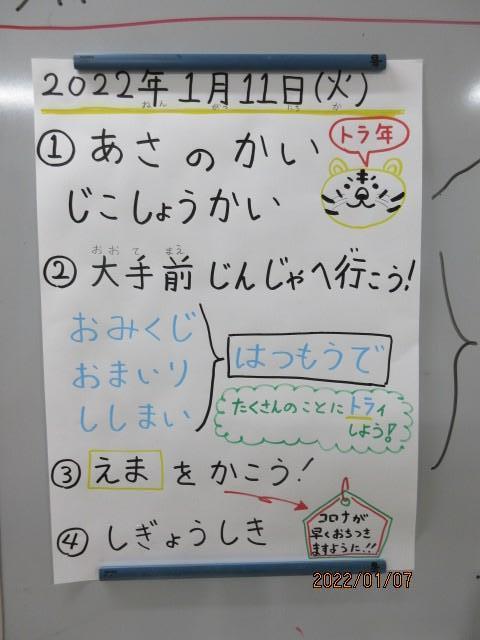 2022年1月11日(火)
ねん がつ にち か
① あさのかい
トラ年
じこしょうかい
おおてまえ
② 大手前じんじゃへ行こう!
おみくじ
おまいり
ししまい
はつもうで
たくさんのことにトライ
しよう!
③ えまをかこう!
④ しぎょうしき
コロナが
早くおちつき
ますように!!
2022/01/07